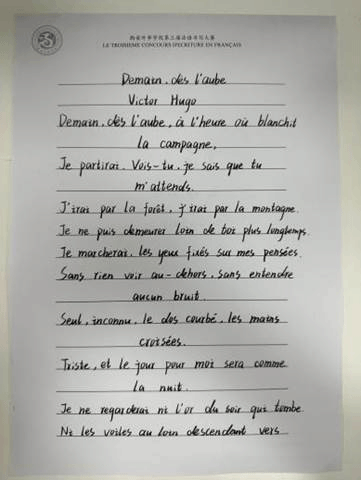 西安外事学院第三届法语书写大赛
LE TROISIEME CONCOURS D'ECRITURE EN FRANÇAIS
Demain, dès l'aube
Victor Hugo
Demain, dès l'aube, à l'heure où blanchit
la campagne,
Je partirai. Vois-tu, je sais que tu
m'attends.
J'irai par la forêt, j'irai par la montagne.
Je ne puis demeurer loin de toi plus longtemps.
Je marcherai, les yeux fixés sur mes pensées.
Sans rien voir au-dehors, sans entendre
aucun bruit.
Seul, inconnu, le dos courbé, les mains
croisées.
Triste, et le jour pour moi sera comme
la nuit.
Je ne regarderai ni l'or du soir qui tombe.
Ni les voiles au loin descendant vers